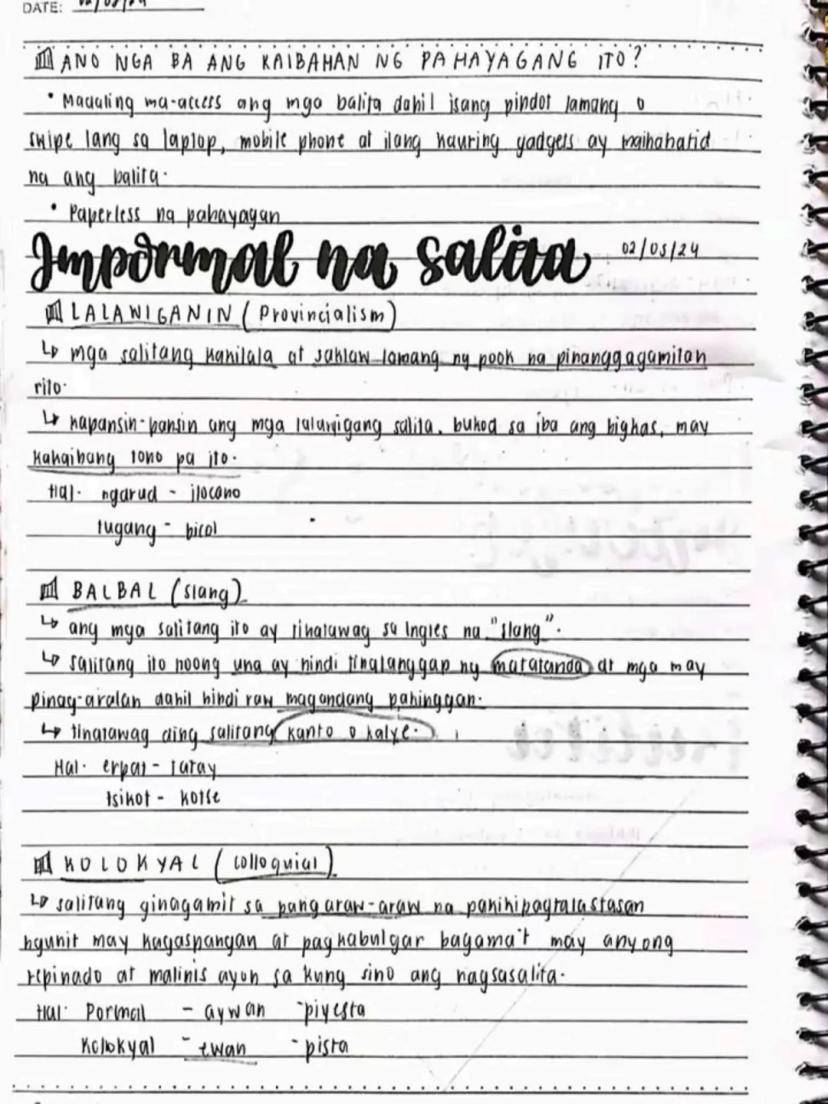 DATE: 02/05/24
ANO NGA BA ANG KAIBAHAN NG PAHAYAGANG ITO?
• Madaling ma-access ang mga balita dahil isang pindot lamang o
swipe lang sa laptop, mobile phone at ilang kauring gadgets ay maihahatid
na ang balita.
• Paperless na pahayagan
Impormal na salita 02/05/24
LALAWIGANIN (Provincialism)
↳ mga salitang kanilala at saklaw lamang ng pook na pinanggagamitan
rito.
↳ kapansin-pansin ang mga lalawigang salita, bukod sa iba ang bigkas, may
kakaibang tono pa ito.
Hal. ngarud - ilocano
tugang - bicol
BALBAL (slang)
↳ ang mga salitang ito ay tinatawag sa Ingles na "slang".
↳ salitang ito noong una ay hindi tinatanggap ng matatanda at mga may
pinag-aralan dahil hindi raw magandang pakinggan.
↳ tinatawag ding salitang kanto o kalye.
Hal. erpat - tatay
tsikot - kotse
KOLOKYAL (colloquial)
↳ salitang ginagamit sa pang araw-araw na pakikipagtalastasan
ngunit may kagaspangan at pagkabulgar bagama't may anyong
repinado at malinis ayon sa kung sino ang nagsasalita.
Hal. Pormal - aywan - piyesta
Kolokyal - ewan - pista